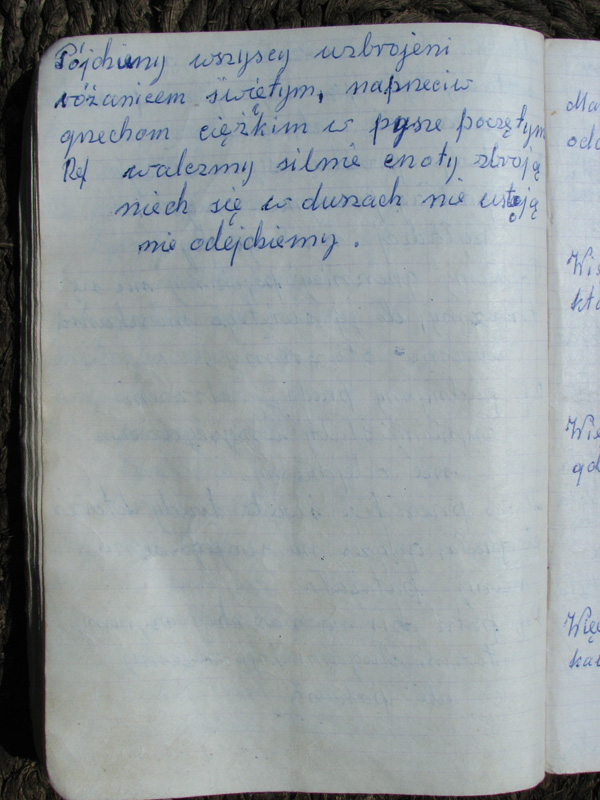 Pójdziemy wszyscy uzbrojeni
różańcem świętym, naprzeciw
grzechom ciężkim w pysze poczętym
Ref walczmy silnie cnoty zbroją
niech się w duszach nie ustoją
nie odejdziemy.
Ma
Wie
któ
Wie
gd
Więc